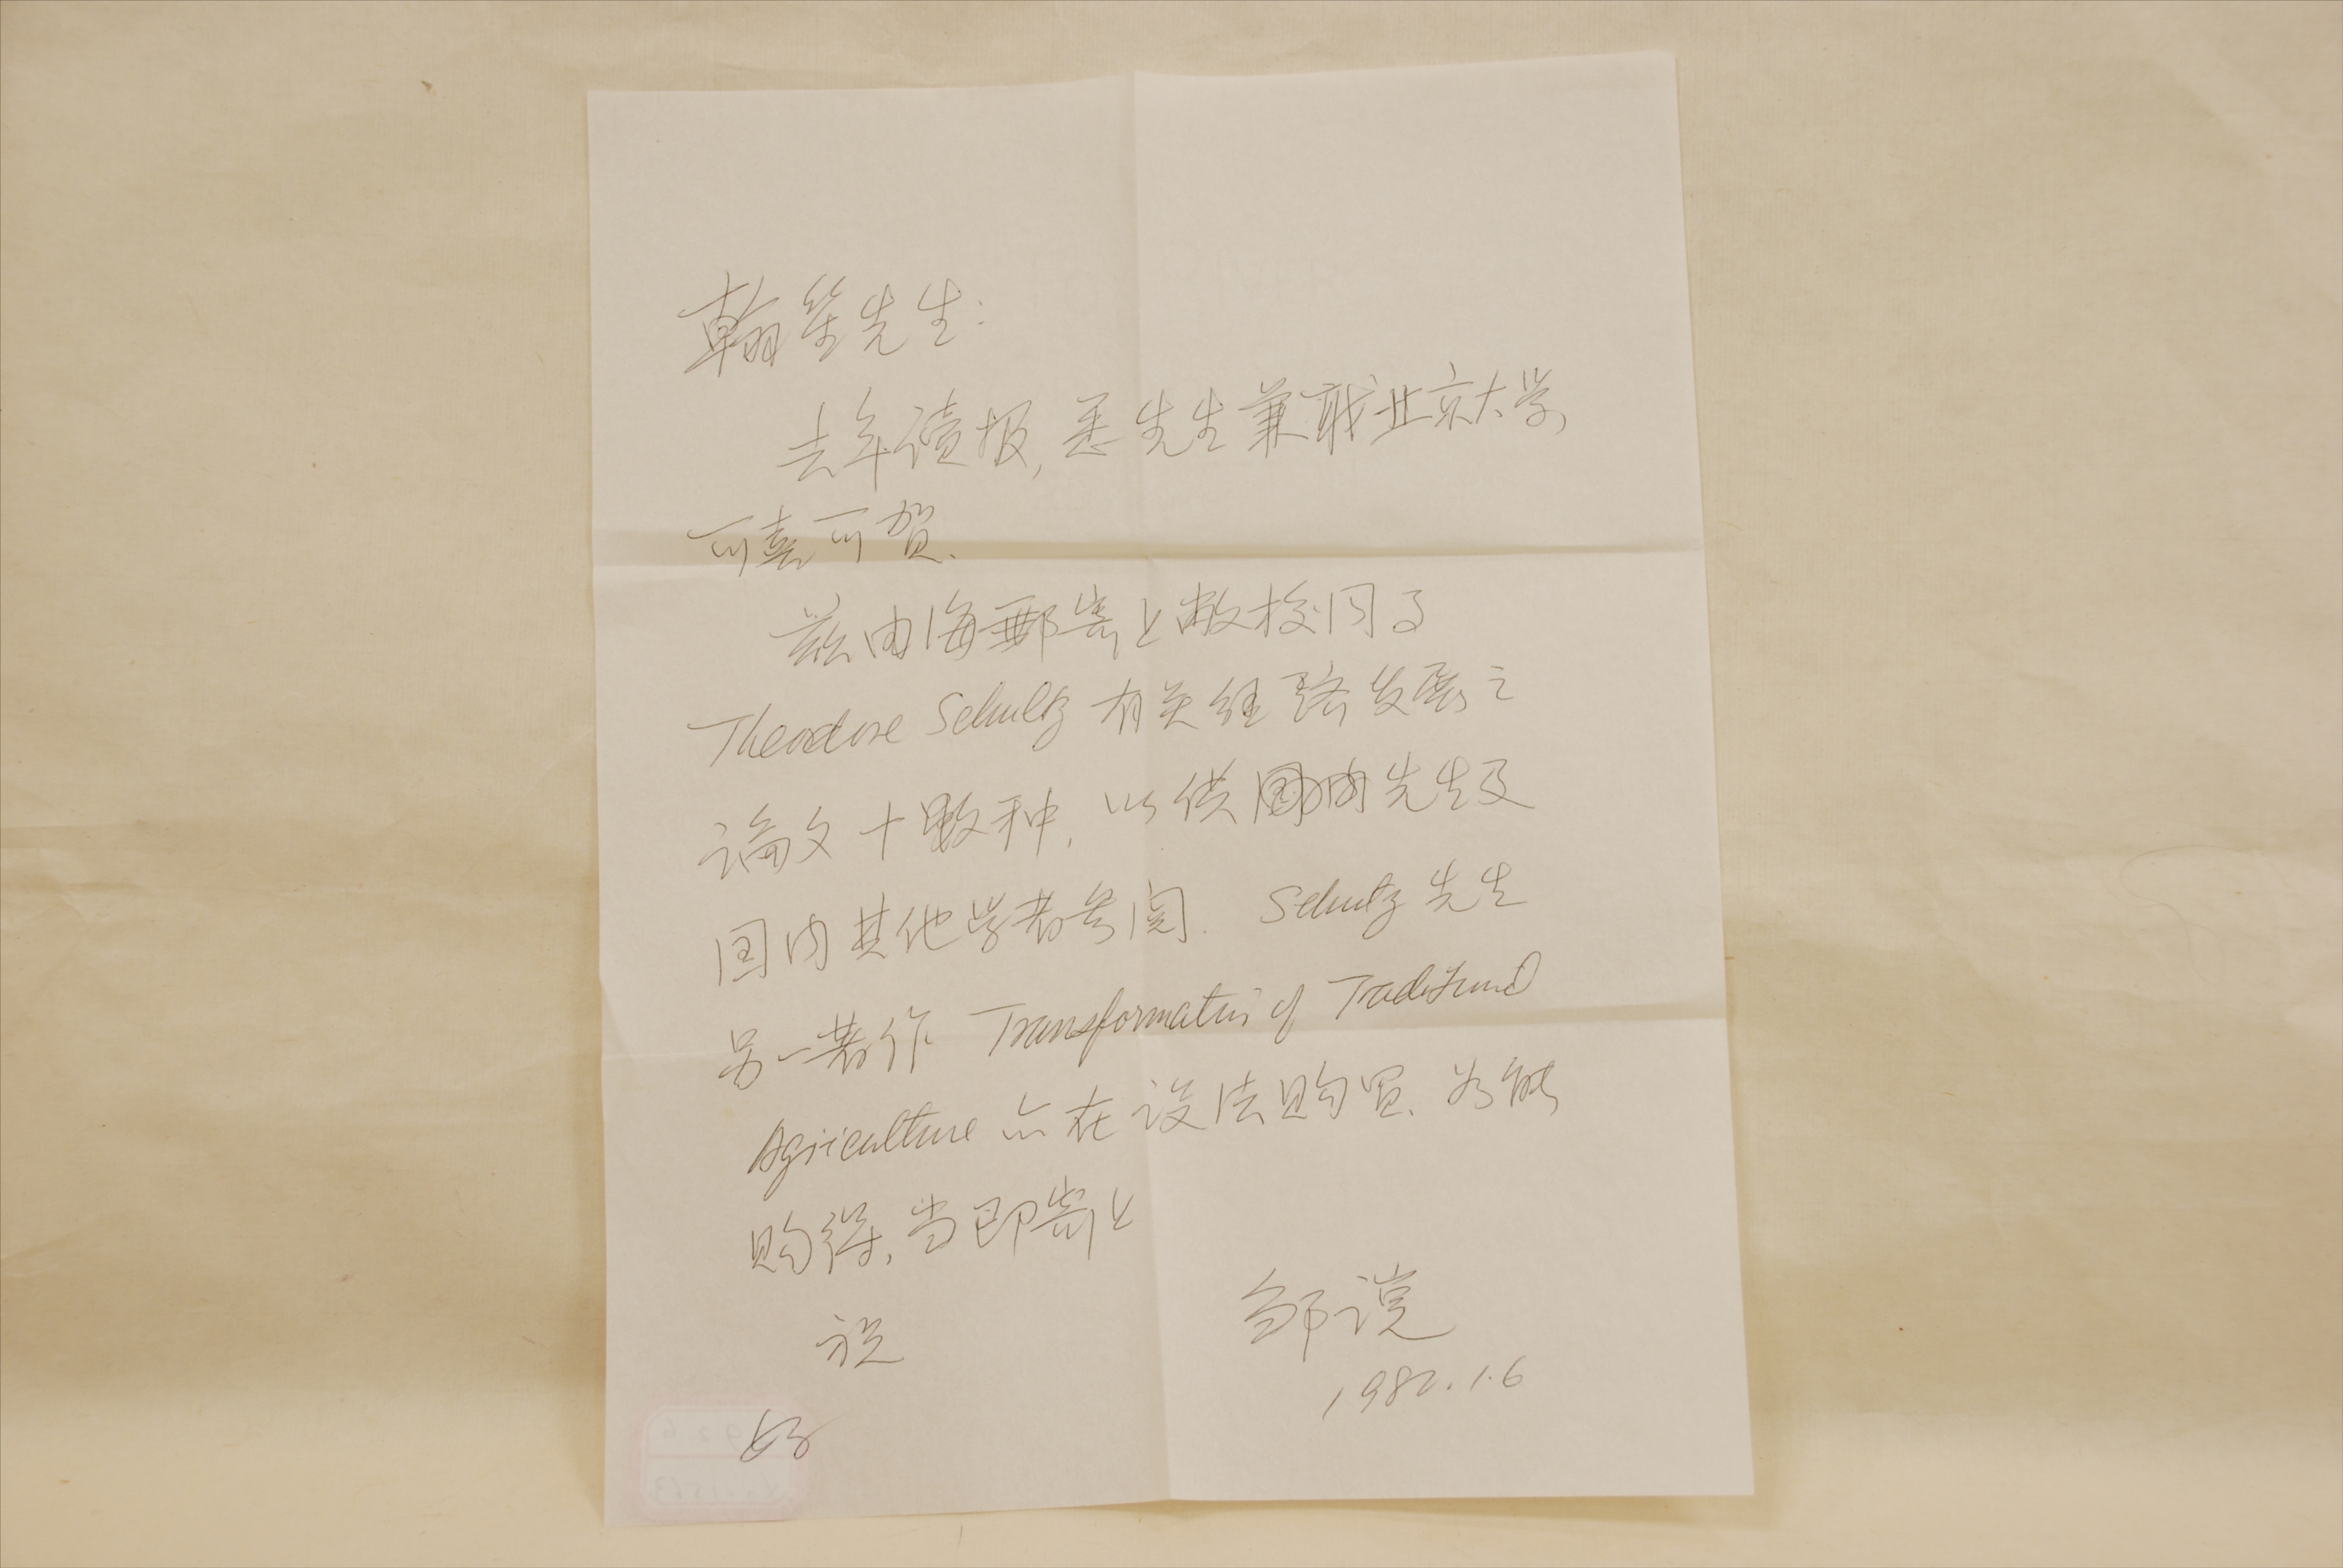 翰笙先生:
去年读报, 悉先生兼职北京大学,
可喜可贺.
兹由海邮寄上敝校同事
Theodore Schultz 有关经济发展之
论文十数种, 以供先生及
国内其他学者参阅. Schultz 先生
另一著作 Transformation of Traditional
Agriculture 亦在设法购买. 如能
购得, 当即寄上
祝
邹谠
1982.1.6
好